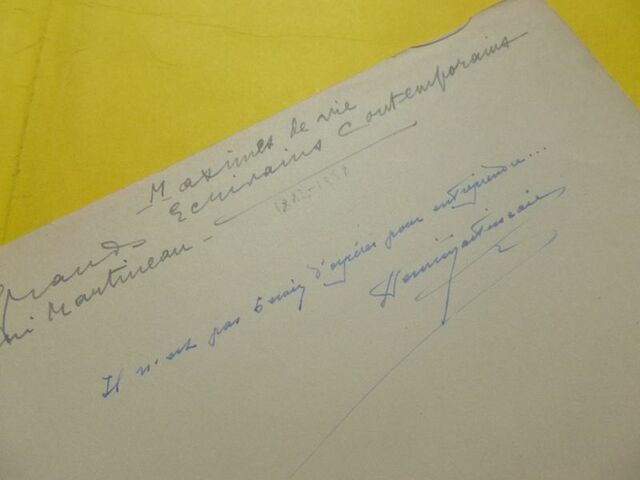 Maximes de vie
Grands Ecrivains Contemporains
ni Martineau -
1882-1958
Il n'est pas besoin d'espérer pour entreprendre...
Henri Martineau